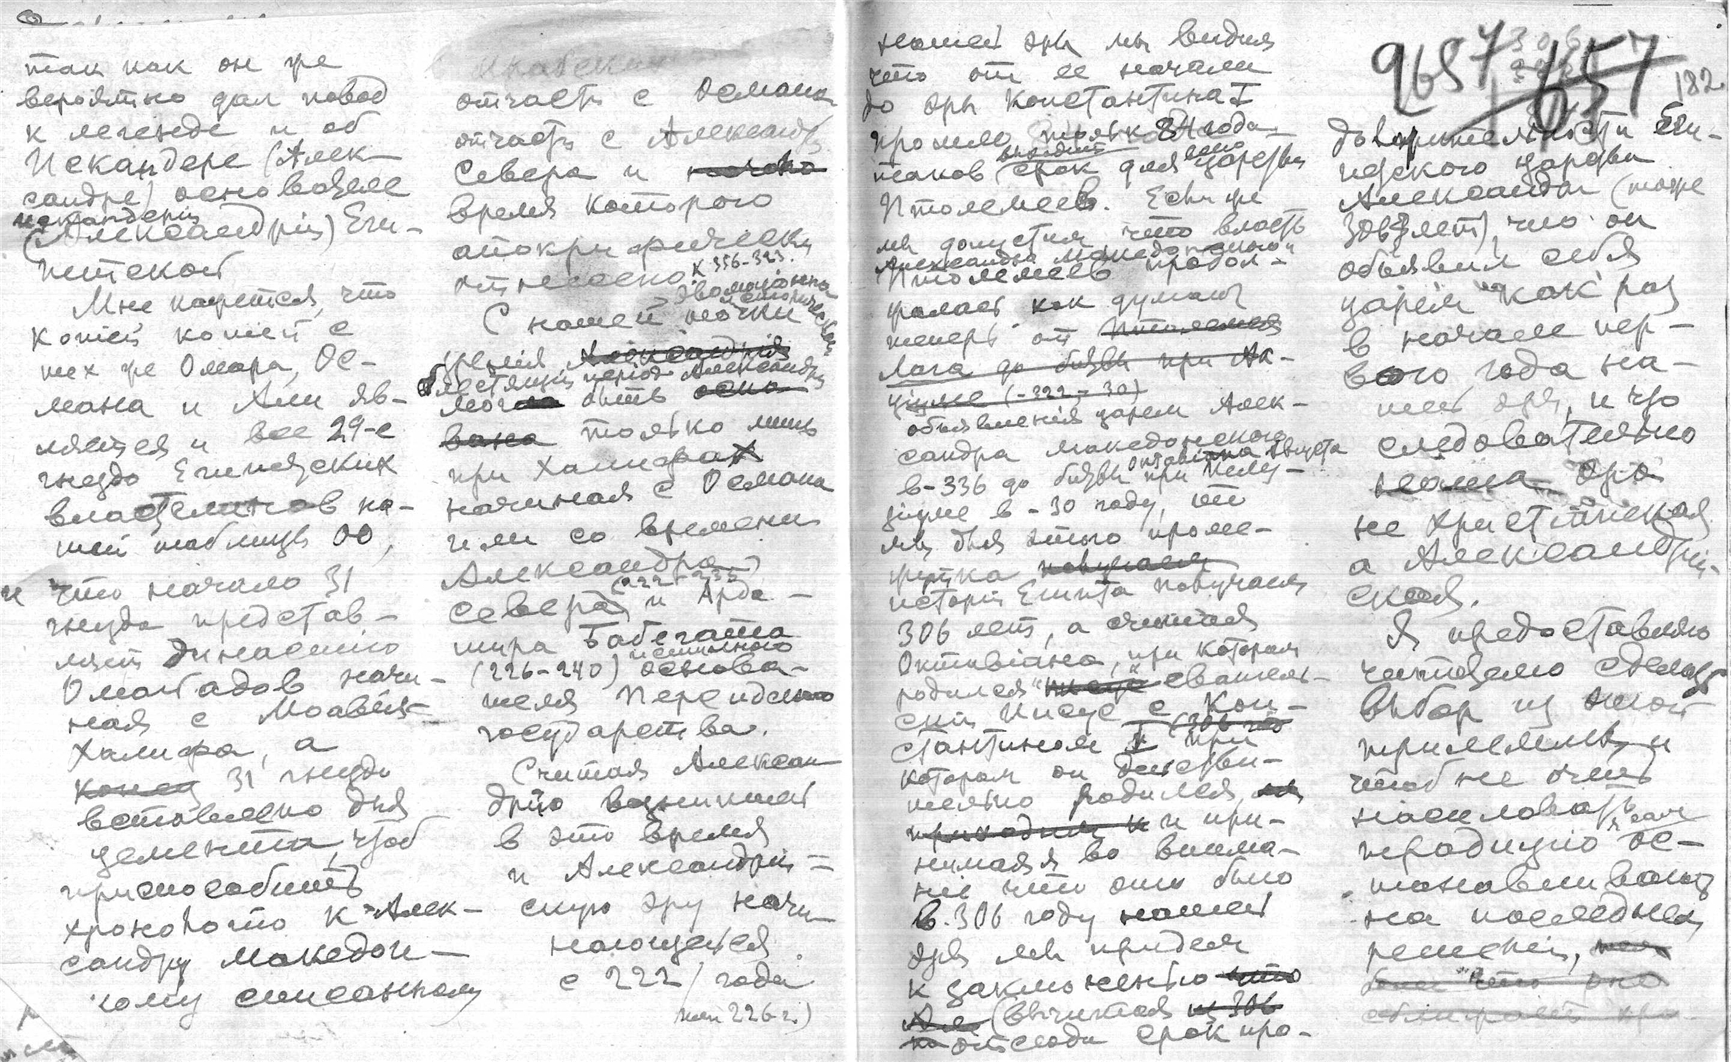 так как он же
вероятно дал повод
к легенде и об
Искандере (Алек-
сандре) основателе
Искандерии
(Александріи) Еги-
петской
Мне кажется, что
копіей копіей с
тех же Омара, Ос-
мана и Али яв-
ляется и все 29-е
гнездо Египетских
властелинов на-
шей таблицы 00,
и что начало 31
гнезда представ-
ляет династію
Омайадов начи-
ная с Моавія-
Халифа, а
конец 31 гнезда
вставлено для
цемента, чтоб
приспособить
хронологію к Алек-
сандру Македон-
кому списанному
отчасти с Османа
отчасти с Александра
Севера и
время которого
апокрифически
отнесено к 356-323.
С нашей точки
зрения Александрія
блестящій період Александріи
могла быть осно-
вана только лишь
при Халифах
начиная с Османа
или со времени
Александра
Севера (222-235) и Арда-
шира Бабегата
истинного
(226-240) основа-
теля Персидского
государства.
Считая Алексан-
дрію возникшей
в это время
и Александрій-
скую эру начи-
нающейся
с 222 года
или 226 г.)
нашей эры мы видим
что от ее начала
до эры Константина I
прошло только 84 года
таков выходит срок для всего царства
Птолемеев. Если же
мы допустим что власть
Александра Македонского и
Птолемеев продол-
жалась как думают
теперь от Птолемея
Лага до битвы при Ак-
ціуме (-322 - 30)
объявления царем Алек-
сандра Македонского
в -336 до битвы Октавіана Августа при Пелу-
зіуме в -30 году, то
мы для этого проме-
жутка получаем
исторіи Египта получаем
306 лет, а считая
Октавіана, при котором
родился "евангель-
скій Иисус с Кон-
стантином I (306 год) при
котором он действи-
тельно родился, мы
приходим к и при-
нимая во внима-
ние что это было
в 306 году нашей
эры мы придем
к заключенью что
(вычитая из 306
отсюда срок про-
9657
306
657
182
должительности Еги-
петского царства
Александра (тоже
306 лет), что он
объявил себя
царем как раз
в начале пер-
вого года на-
шей эры, и что
следовательно
наша эра
не христіанская
а Александрій-
ская.
Я предоставляю
читателю сделать
выбор из этой
дилеммы, и
чтоб не очень
насиловать
традицію ос-
танавливаюсь
на последнем
решеніи,